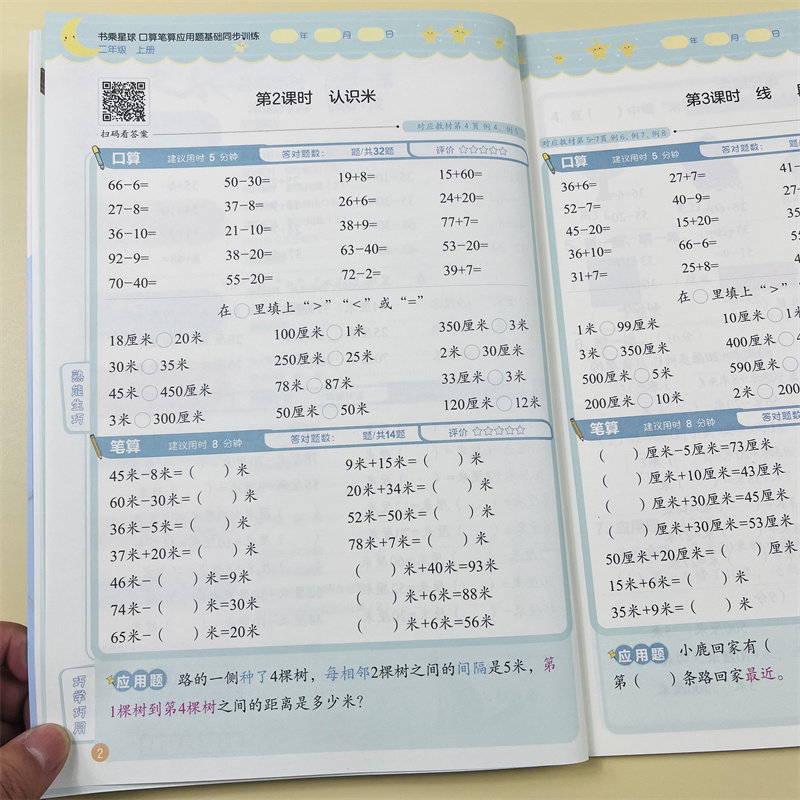 书乘星球 口算笔算应用题基础同步训练
二年级 上册
年 月 日
第2课时 认识米
扫码看答案
对应教材第4页例4、例5
口算 建议用时 5 分钟 答对题数： 题/共32题 评价 ☆☆☆☆☆
66-6= 50-30= 19+8= 15+60=
27-8= 37-8= 26+6= 24+20=
36-10= 21-10= 38+9= 77+7=
92-9= 38-20= 63-40= 53-20=
70-40= 55-20= 72-2= 39+7=
在○里填上“>”“<”或“=”
18厘米○20米 100厘米○1米 350厘米○3米
30米○35米 250厘米○25米 2米○30厘米
45米○450厘米 78米○87米 33厘米○3米
3米○300厘米 50厘米○50米 120厘米○12米
熟能生巧
笔算 建议用时 8 分钟 答对题数： 题/共14题 评价 ☆☆☆☆☆
45米-8米=( )米 9米+15米=( )米
60米-30米=( )米 20米+34米=( )米
36米-5米=( )米 52米-50米=( )米
37米+20米=( )米 78米+7米=( )米
46米-( )米=9米 ( )米+40米=93米
74米-( )米=30米 ( )米+6米=88米
65米-( )米=20米 ( )米+6米=56米
巧学巧用
应用题 路的一侧种了4棵树，每相邻2棵树之间的间隔是5米，第
1棵树到第4棵树之间的距离是多少米？
2
年 月 日
第3课时 线
对应教材第5~7页例6、例7、例8
口算 建议用时 5 分钟 答对题数： 题/
36+6= 27+7= 41-
52-7= 40-9= 27-
45-20= 15+20= 35
36+10= 66-6= 55
31+7= 25+8= 4
在○里填上“>”“
1米○99厘米 10厘米○1米
3米○350厘米 400厘米○4
500厘米○5米 590厘米○
200厘米○10米 2米○200
笔算 建议用时 8 分钟 答对题数
( )厘米-5厘米=73厘米
( )厘米+10厘米=43厘米
( )厘米+30厘米=45厘米
( )厘米+30厘米=53厘米
50厘米+20厘米=( )厘米
15米+6米=( )米
35米+9米=( )米
应用题 小鹿回家有(
第( )条路回家最近。